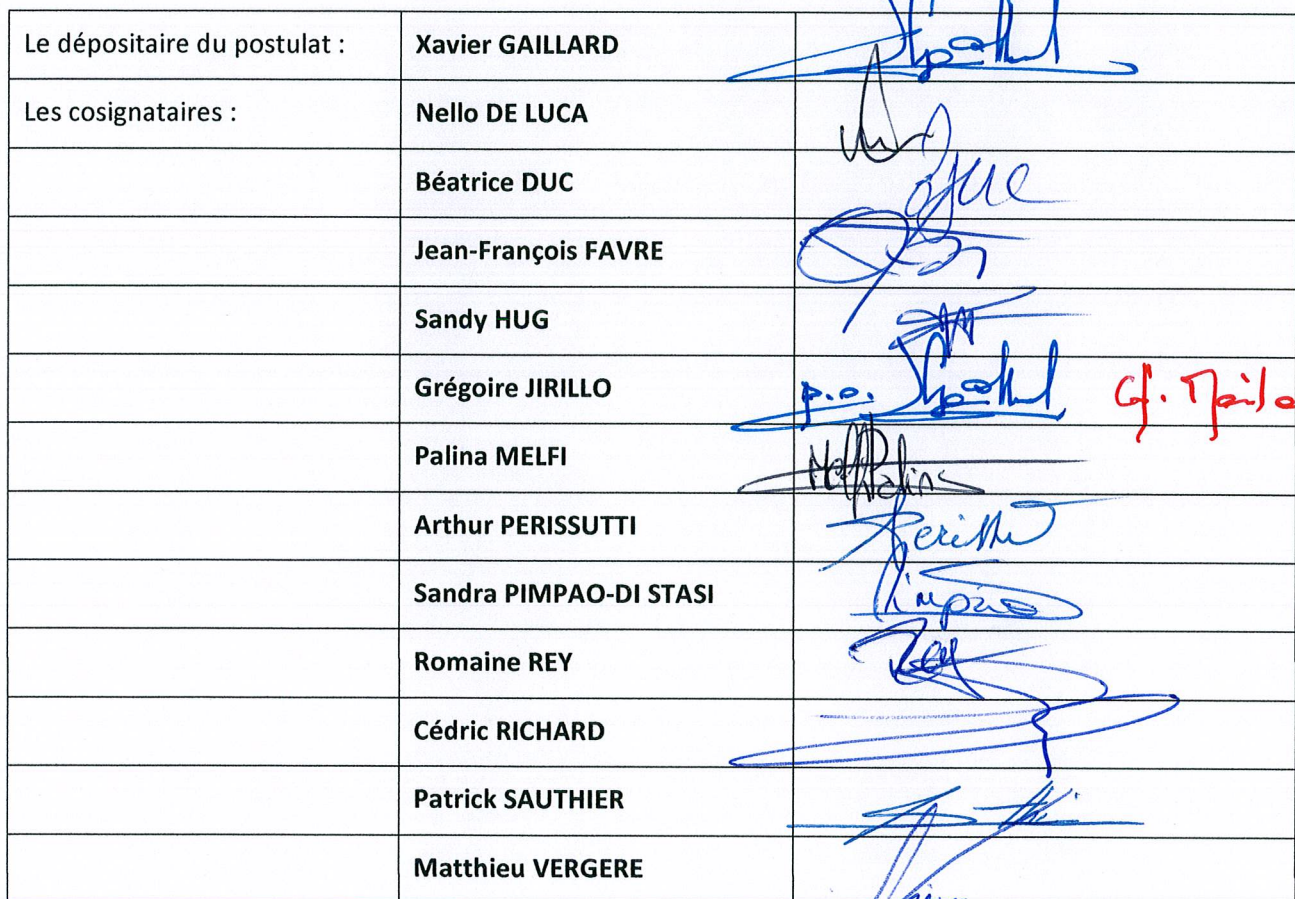 Le dépositaire du postulat : Xavier GAILLARD
Les cosignataires : Nello DE LUCA
Béatrice DUC
Jean-François FAVRE
Sandy HUG
Grégoire JIRILLO p.o.
Palina MELFI
Arthur PERISSUTTI
Sandra PIMPAO-DI STASI
Romaine REY
Cédric RICHARD
Patrick SAUTHIER
Matthieu VERGERE